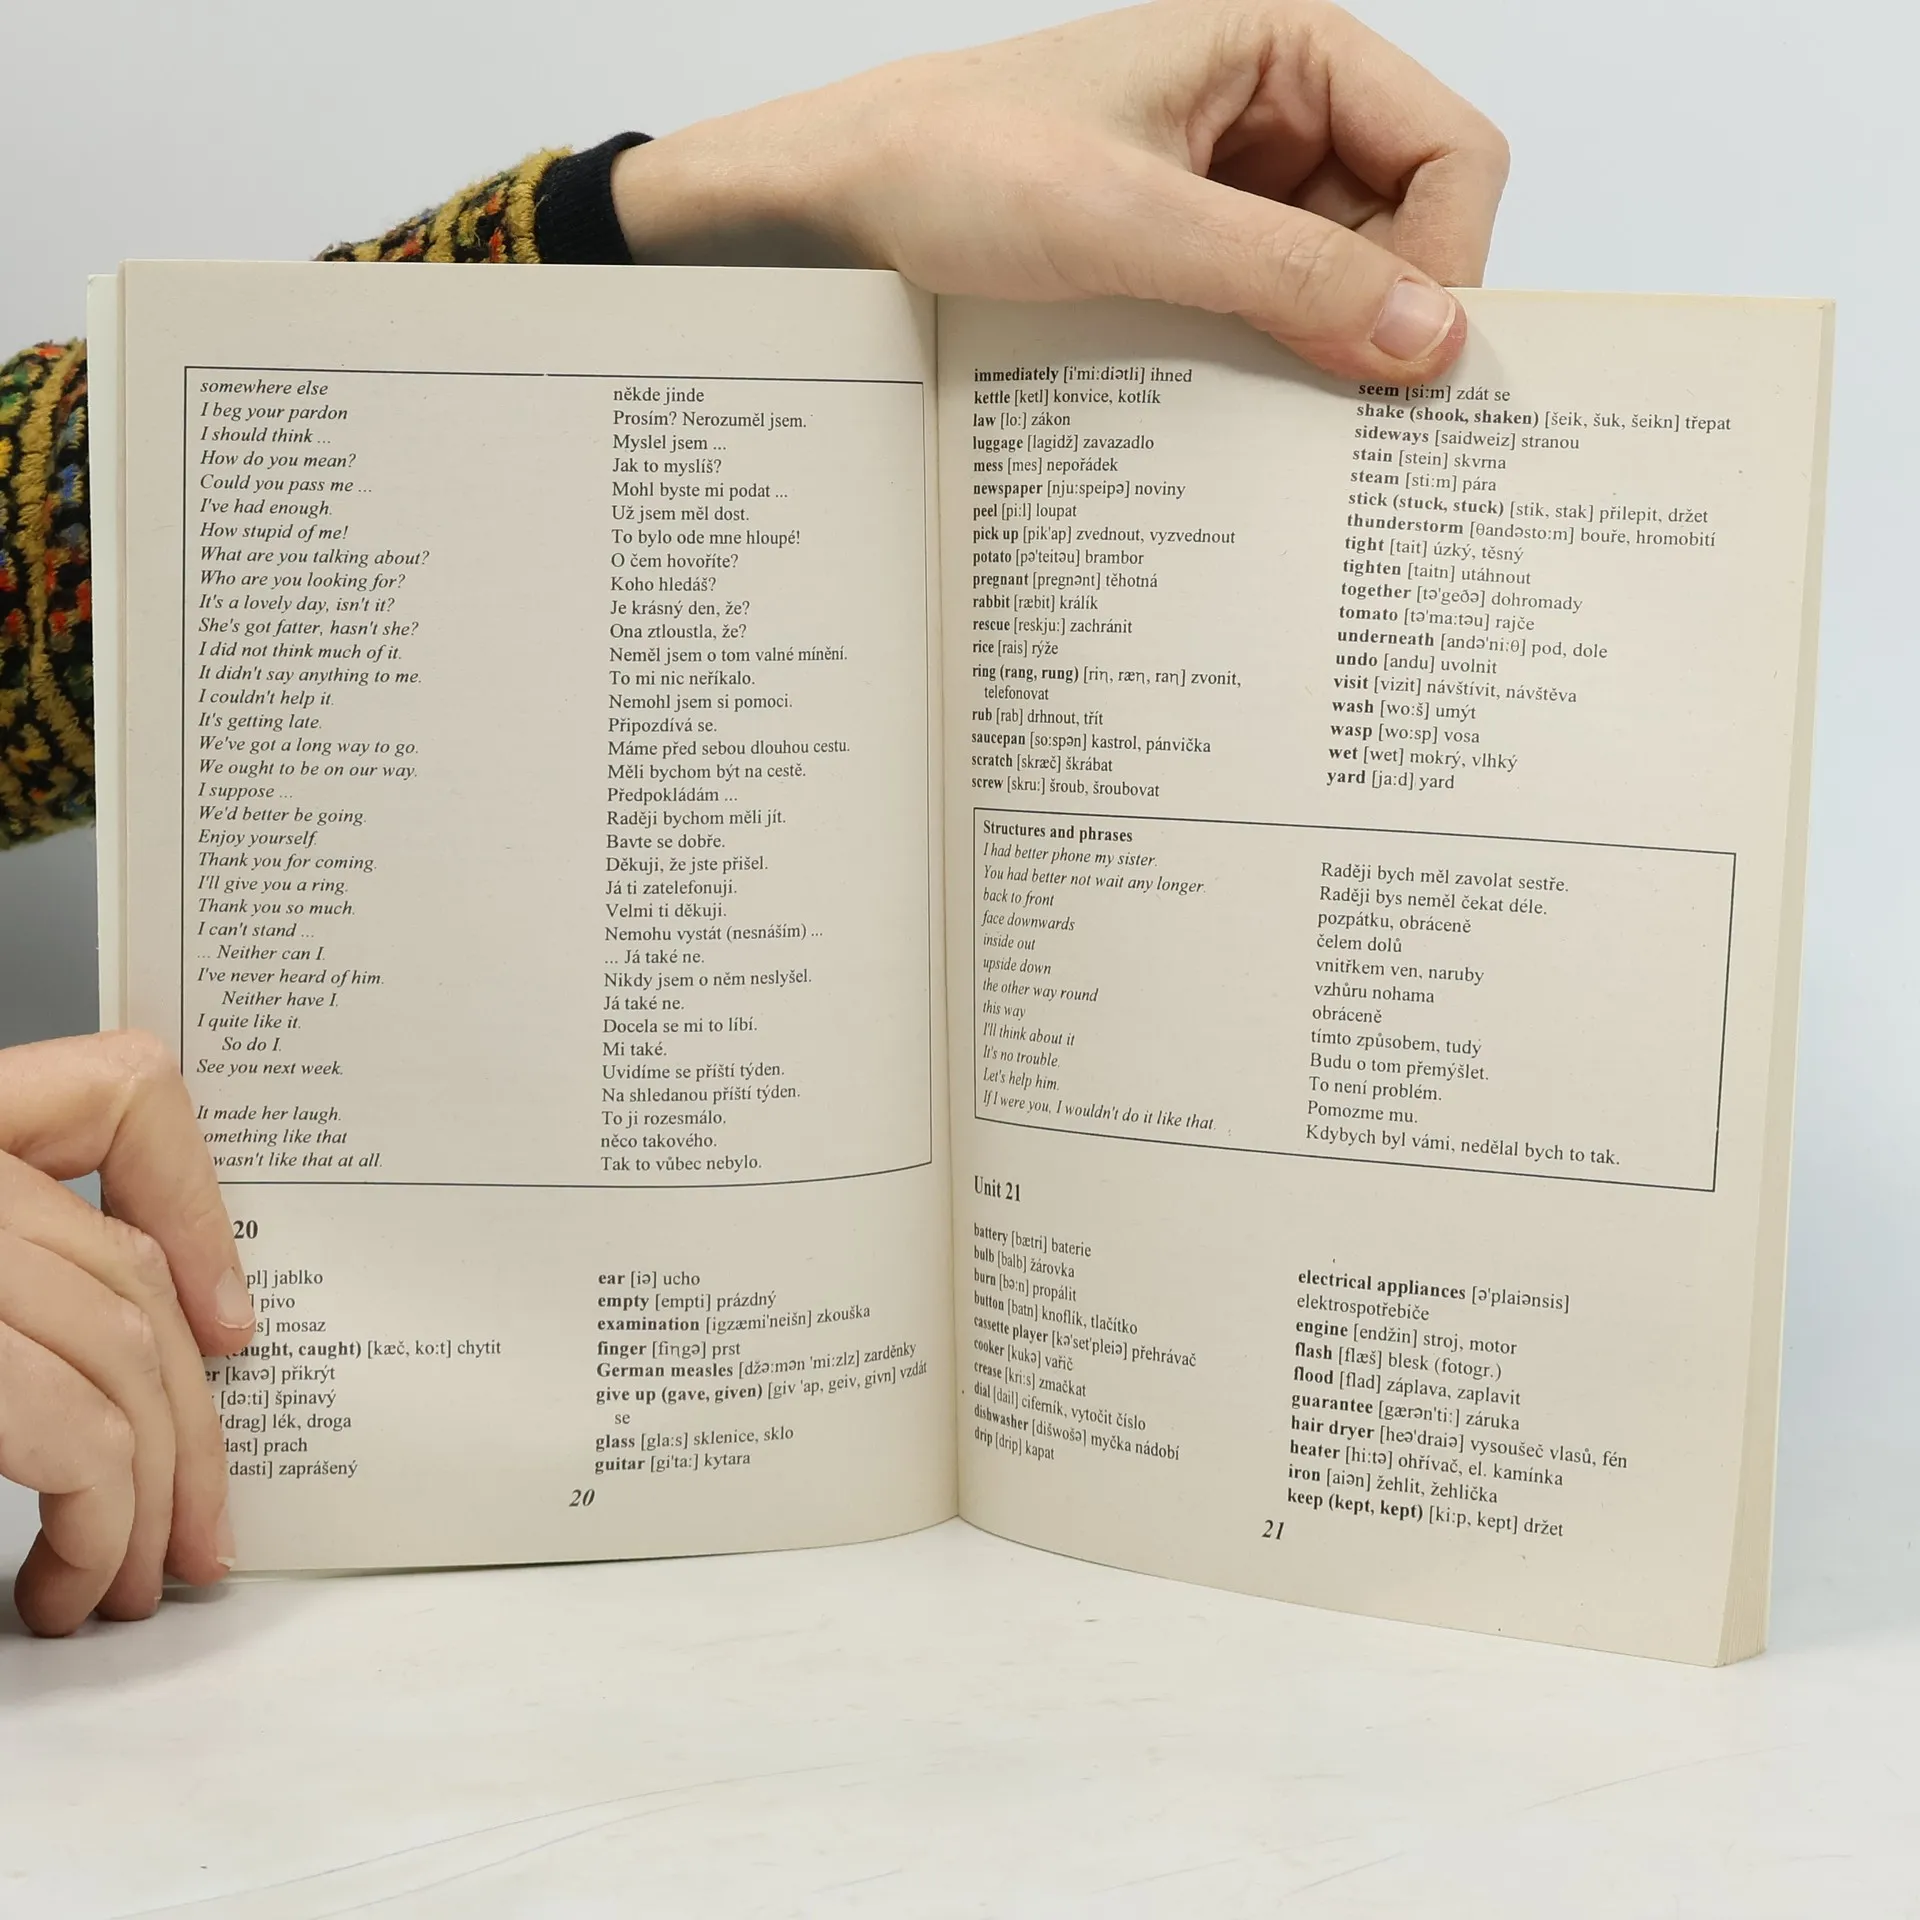 somewhere else někde jinde
I beg your pardon Prosím? Nerozuměl jsem.
I should think ... Myslel jsem ...
How do you mean? Jak to myslíš?
Could you pass me ... Mohl byste mi podat ...
I've had enough. Už jsem měl dost.
How stupid of me! To bylo ode mne hloupé!
What are you talking about? O čem hovoříte?
Who are you looking for? Koho hledáš?
It's a lovely day, isn't it? Je krásný den, že?
She's got fatter, hasn't she? Ona ztloustla, že?
I did not think much of it. Neměl jsem o tom valné mínění.
It didn't say anything to me. To mi nic neříkalo.
I couldn't help it. Nemohl jsem si pomoci.
It's getting late. Připozdívá se.
We've got a long way to go. Máme před sebou dlouhou cestu.
We ought to be on our way. Měli bychom být na cestě.
I suppose ... Předpokládám ...
We'd better be going. Raději bychom měli jít.
Enjoy yourself. Bavte se dobře.
Thank you for coming. Děkuji, že jste přišel.
I'll give you a ring. Já ti zatelefonuji.
Thank you so much. Velmi ti děkuji.
I can't stand ... Nemohu vystát (nesnáším) ...
... Neither can I. ... Já také ne.
I've never heard of him. Nikdy jsem o něm neslyšel.
Neither have I. Já také ne.
I quite like it. Docela se mi to líbí.
So do I. Mi také.
See you next week. Uvidíme se příští týden.
Na shledanou příští týden.
It made her laugh. To ji rozesmálo.
omething like that něco takového.
wasn't like that at all. Tak to vůbec nebylo.
20
pl] jablko
] pivo
s] mosaz
(caught, caught) [kæč, ko:t] chytit
er [kavə] přikrýt
[də:ti] špinavý
[drag] lék, droga
dast] prach
[dasti] zaprášený
ear [iə] ucho
empty [empti] prázdný
examination [igzæmi'neišn] zkouška
finger [fiŋgə] prst
German measles [džə:mən 'mi:zlz] zarděnky
give up (gave, given) [giv 'ap, geiv, givn] vzdát
se
glass [gla:s] sklenice, sklo
guitar [gi'ta:] kytara
20
immediately [i'mi:diətli] ihned
kettle [ketl] konvice, kotlík
law [lo:] zákon
luggage [lagidž] zavazadlo
mess [mes] nepořádek
newspaper [nju:speipə] noviny
peel [pi:l] loupat
pick up [pik'ap] zvednout, vyzvednout
potato [pə'teitəu] brambor
pregnant [pregnənt] těhotná
rabbit [ræbit] králík
rescue [reskju:] zachránit
rice [rais] rýže
ring (rang, rung) [riŋ, ræŋ, raŋ] zvonit,
telefonovat
rub [rab] drhnout, třít
saucepan [so:spən] kastrol, pánvička
scratch [skræč] škrábat
screw [skru:] šroub, šroubovat
seem [si:m] zdát se
shake (shook, shaken) [šeik, šuk, šeikn] třepat
sideways [saidweiz] stranou
stain [stein] skvrna
steam [sti:m] pára
stick (stuck, stuck) [stik, stak] přilepit, držet
thunderstorm [θandəsto:m] bouře, hromobití
tight [tait] úzký, těsný
tighten [taitn] utáhnout
together [tə'geðə] dohromady
tomato [tə'ma:təu] rajče
underneath [andə'ni:θ] pod, dole
undo [andu] uvolnit
visit [vizit] návštívit, návštěva
wash [wo:š] umýt
wasp [wo:sp] vosa
wet [wet] mokrý, vlhký
yard [ja:d] yard
Structures and phrases
I had better phone my sister. Raději bych měl zavolat sestře.
You had better not wait any longer. Raději bys neměl čekat déle.
back to front pozpátku, obráceně
face downwards čelem dolů
inside out vnitřkem ven, naruby
upside down vzhůru nohama
the other way round obráceně
this way tímto způsobem, tudy
I'll think about it Budu o tom přemýšlet.
It's no trouble. To není problém.
Let's help him. Pomozme mu.
If I were you, I wouldn't do it like that. Kdybych byl vámi, nedělal bych to tak.
Unit 21
battery [bætri] baterie
bulb [balb] žárovka
burn [bə:n] propálit
button [batn] knoflík, tlačítko
cassette player [kə'set'pleiə] přehrávač
cooker [kukə] vařič
crease [kri:s] zmačkat
dial [dail] ciferník, vytočit číslo
dishwasher [dišwošə] myčka nádobí
drip [drip] kapat
electrical appliances [ə'plaiənsis]
elektrospotřebiče
engine [endžin] stroj, motor
flash [flæš] blesk (fotogr.)
flood [flad] záplava, zaplavit
guarantee [gærən'ti:] záruka
hair dryer [heə'draiə] vysoušeč vlasů, fén
heater [hi:tə] ohřívač, el. kamínka
iron [aiən] žehlit, žehlička
keep (kept, kept) [ki:p, kept] držet
21